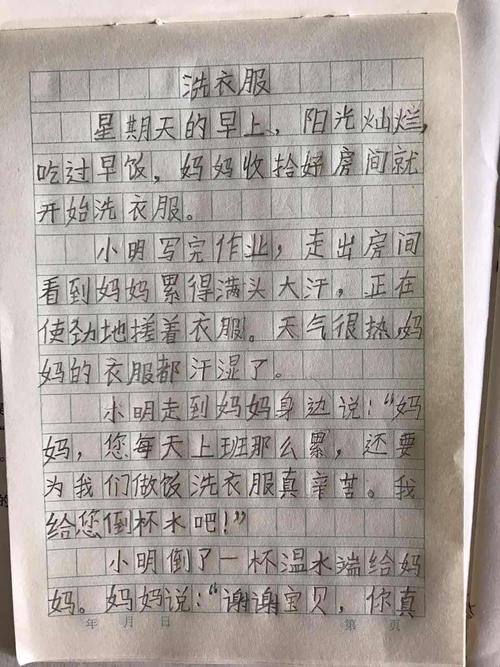 洗衣服
星期天的早上，阳光灿烂，
吃过早饭，妈妈收拾好房间就
开始洗衣服。
小明写完作业，走出房间
看到妈妈累得满头大汗，正在
使劲地搓着衣服。天气很热，妈
妈的衣服都汗湿了。
小明走到妈妈身边说：“妈
妈，您每天上班那么累，还要
为我们做饭洗衣服真辛苦。我
给您倒杯水吧！”
小明倒了一杯温水端给妈
妈。妈妈说：“谢谢宝贝，你真
年 月 日 第 页